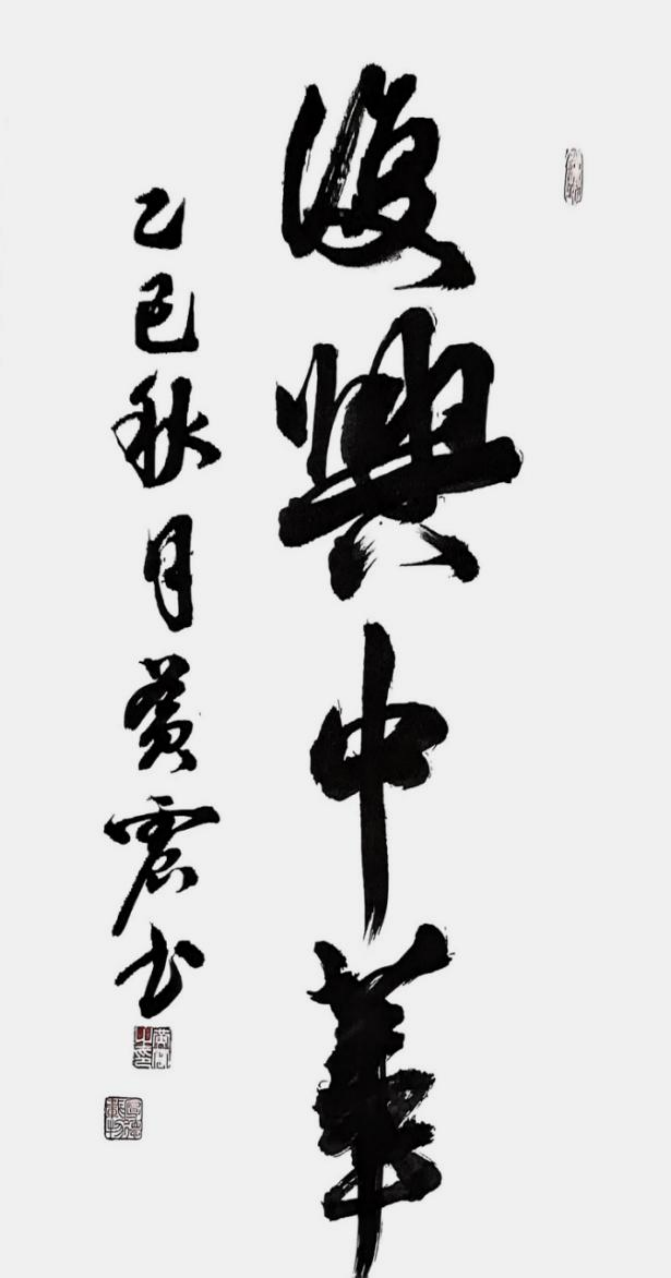 復興中華
乙巳秋月黄震书